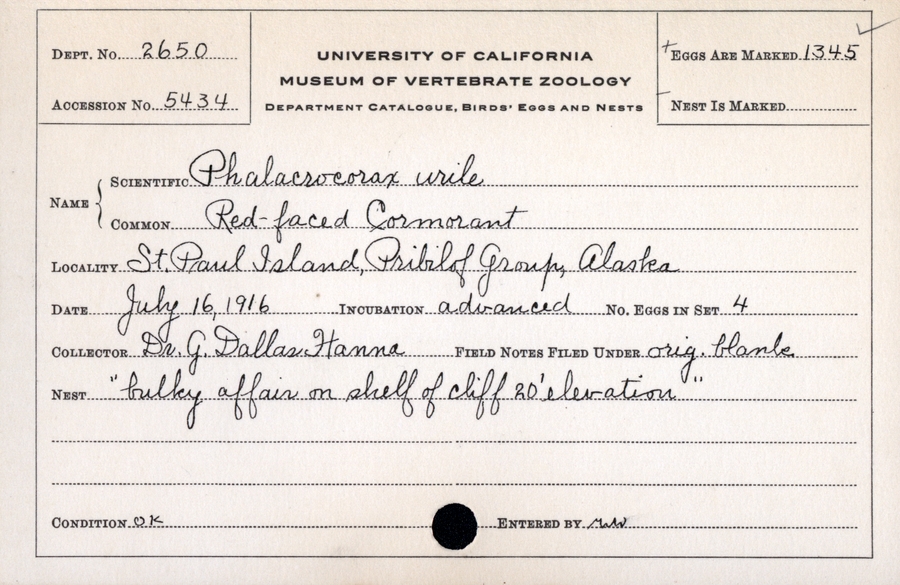 Dept. No. 2650
Accession No. 5434
University of California
Museum of Vertebrate Zoology
Department Catalogue, Birds' Eggs and Nests
+ Eggs Are Marked 1345 ✓
– Nest Is Marked
Name { Scientific Phalacrocorax urile
Common Red-faced Cormorant
Locality St. Paul Island, Pribilof Group, Alaska
Date July 16, 1916 Incubation advanced No. Eggs in Set 4
Collector Dr. G. Dallas Hanna Field Notes Filed Under orig. blank
Nest "bulky affair on shelf of cliff 20' elevation"
Condition OK Entered by